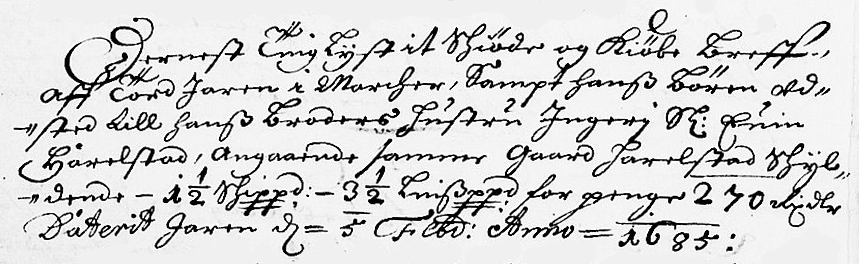 Dernest Ting Lyst it Skiøde og Kiøbe Breff
aff Tord Jaren i Marcher, Sampt hanß Børen ud-
sted till hanß Broders Hustru Ingerj Sl: Euin
Harelstad, Angaaende samme Gaard Harelstad Skyl-
dende - 1 1/2 Skippd: - 3 1/2 Lißppd for penge 270 Rixdlr
Daterit Jaren d = 5 Febr: Anno = 1685: